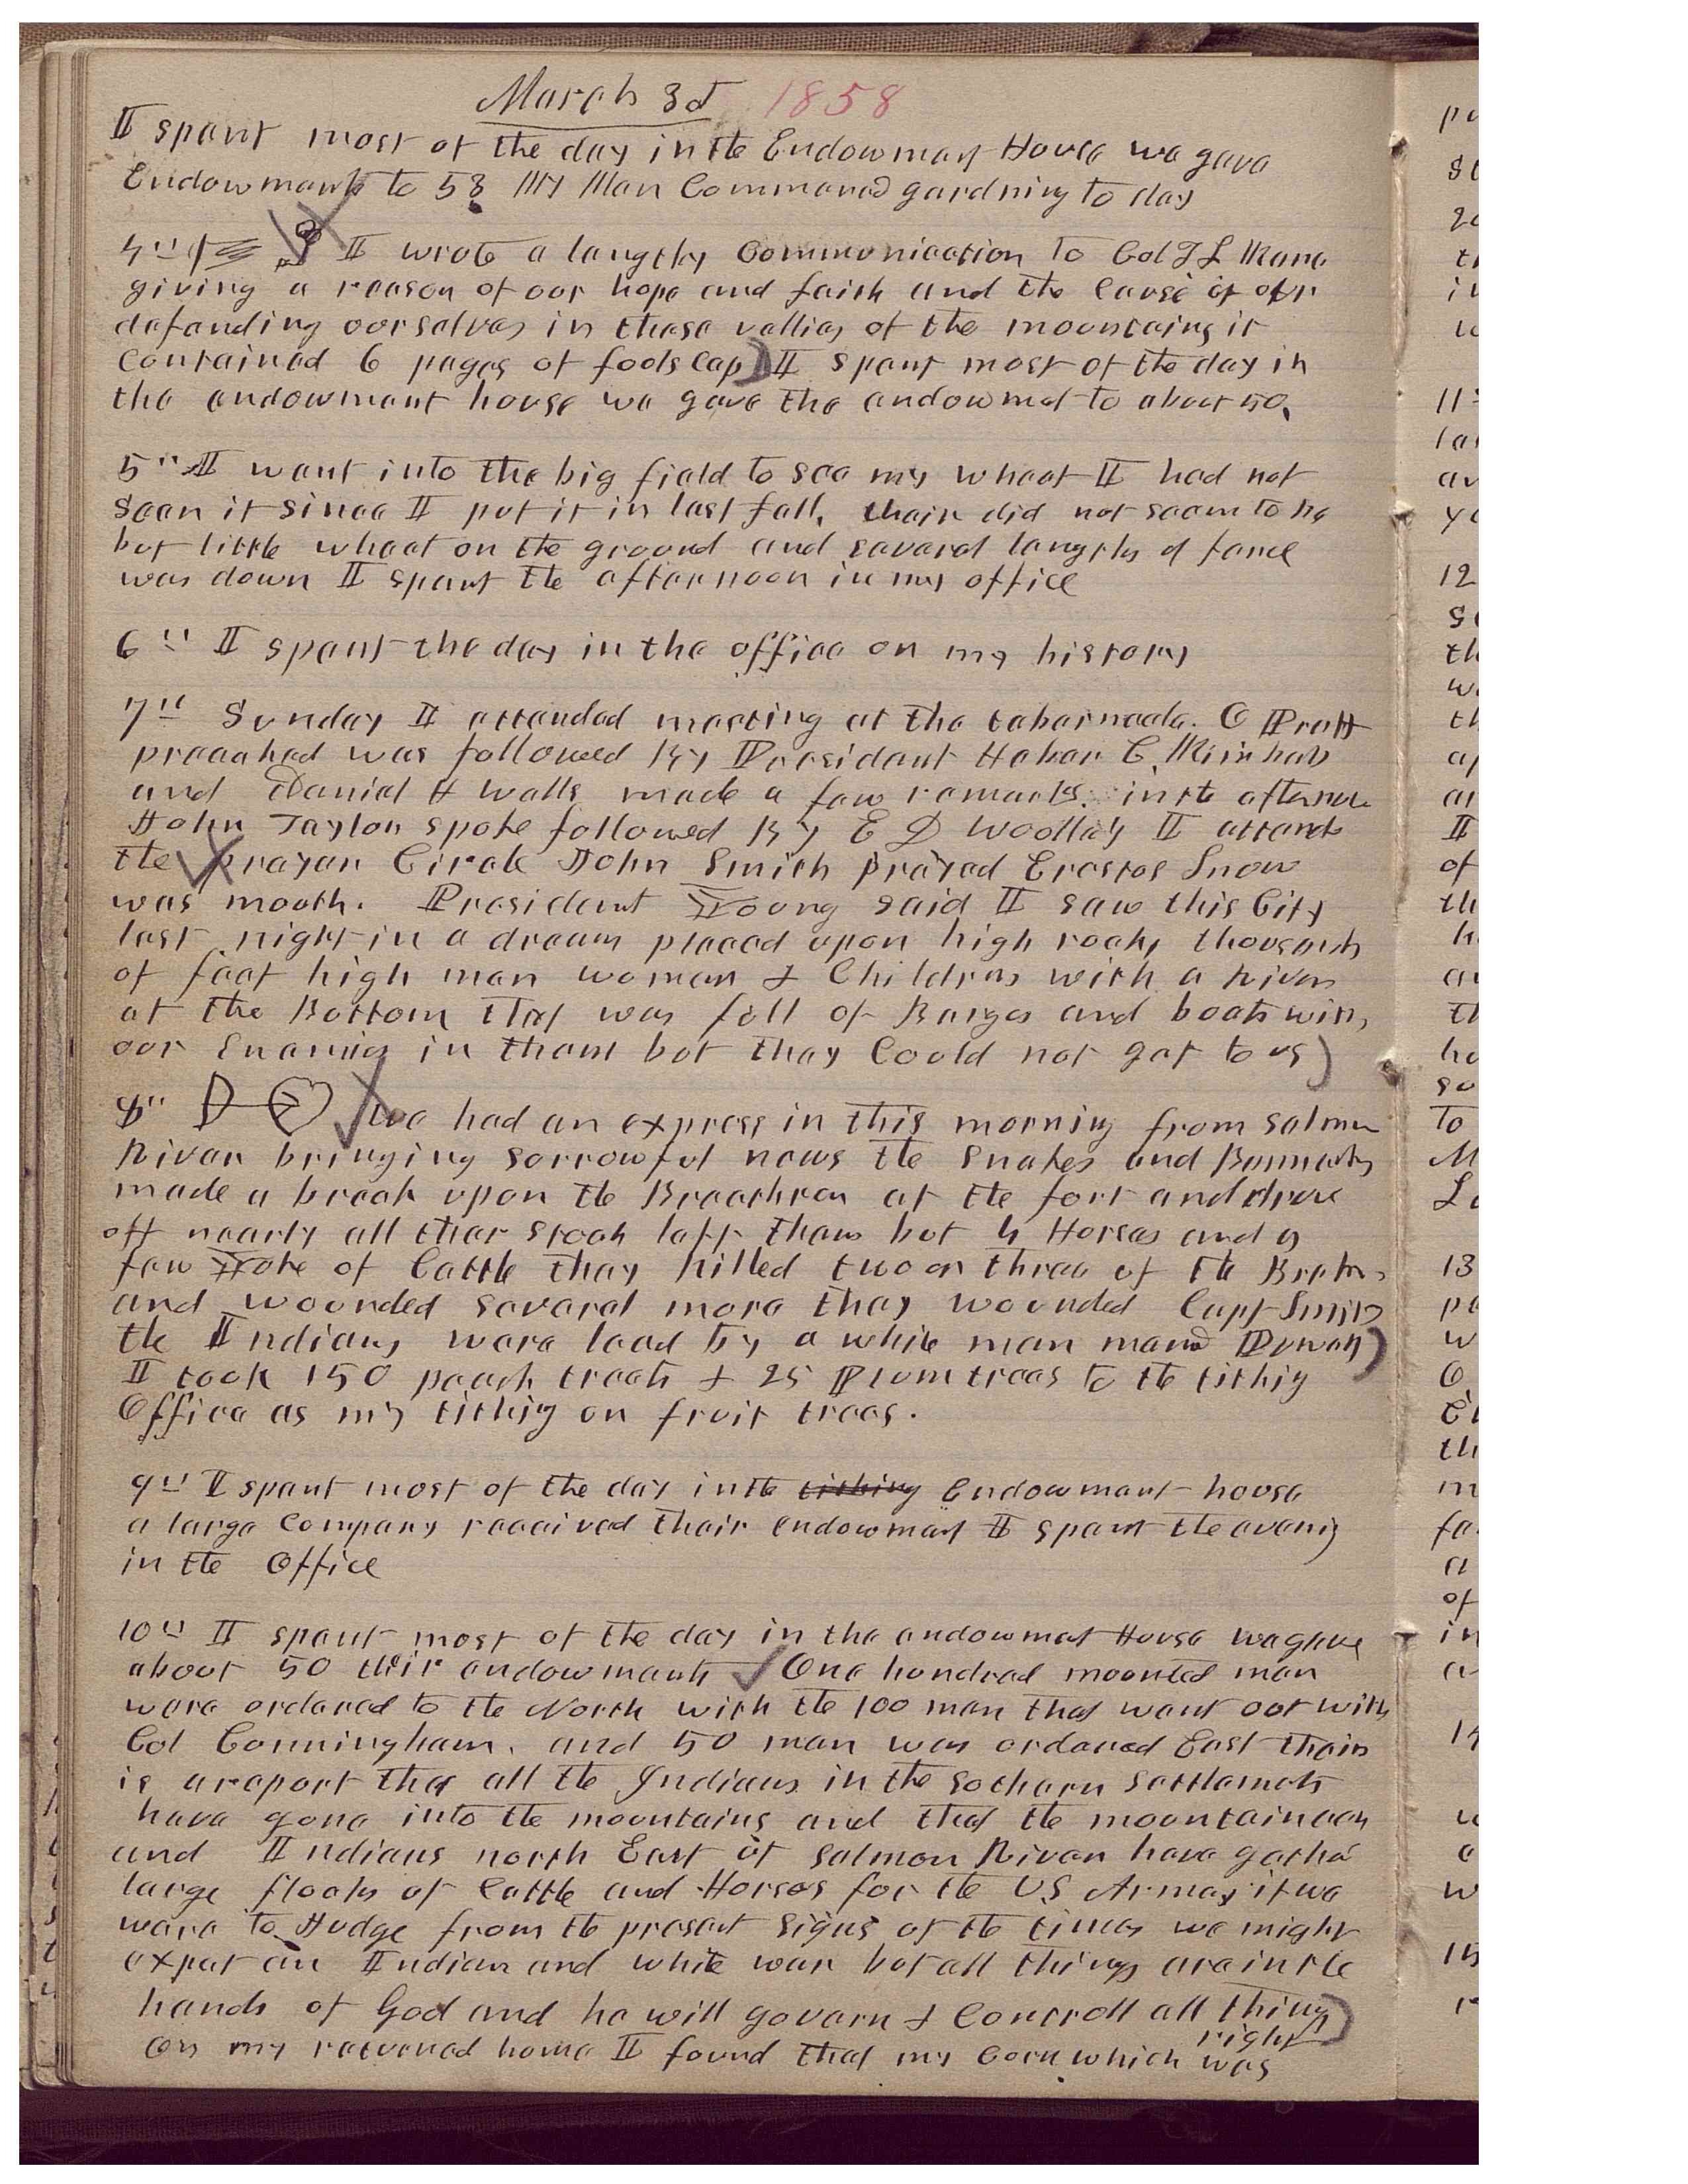 March 3d 1858
I spent most of the day in the Endowment House we gave
Endowments to 53 My Men Commenced gardning to day
4th I wrote a lengthy Communication to Col T L Kane
giving a reason of our hope and faith and the Cause of our
defending ourselves in these vallies of the mountains it
Contained 6 pages of foolscap) I spent most of the day in
the endowment house we gave the endowmet to about 50.
5th I went into the big field to see my wheat I had not
seen it since I put it in last fall, their did not seem to be
but little wheat on the ground and several lengths of fence
was down I spent the afternoon in my office
6th I spent the day in the office on my history
7th Sunday I attended meeting at the tabernacle. O Pratt
preached was followed By President Heber C. Kimball
and Daniel H Wells made a few remarks. in the afternoon
John Taylor spoke followed By E D Woolley I attend
the prayer Circle John Smith prayed Erastus Snow
was mouth. President Young said I saw this City
last night in a dream placed upon high rocks thousands
of feet high men women & Children with a River
at the Bottom that was full of Barges and boats with
our Enamies in them but they Could not get to us)
8th We had an express in this morning from Salmon
River bringing sorrowful news the Snakes and Bannacks
made a break upon the Breathren at the fort and drove
off nearly all ther stock left them but 4 Horses and a
few Yoke of Cattle they killed two or three of the Brethr
and wounded several more they wounded Capt Smith
the Indians were lead by a white man named Powell)
I took 150 peach treets & 25 Plum trees to the tithing
Office as my tithing on fruit trees.
9th I spent most of the day in the tithing Endowment house
a large Company received their endowment I spent the evening
in the Office
10th I spent most of the day in the endowmet House we gave
about 50 their endowments One hundred mounted men
were ordered to the North with the 100 men that went out with
Col Cunningham. and 50 men was ordered East their
is a report that all the Indians in the Southern Settlemets
have gone into the mountains and that the mountaineers
and Indians north East of Salmon River have gathd
large flocks of Cattle and Horses for the US Army if we
were to Judge from the present signs of the times we might
expet an Indian and white war but all things are in the
hands of God and he will govern & Controll all things
right)
On my returned home I found that my Corn which was